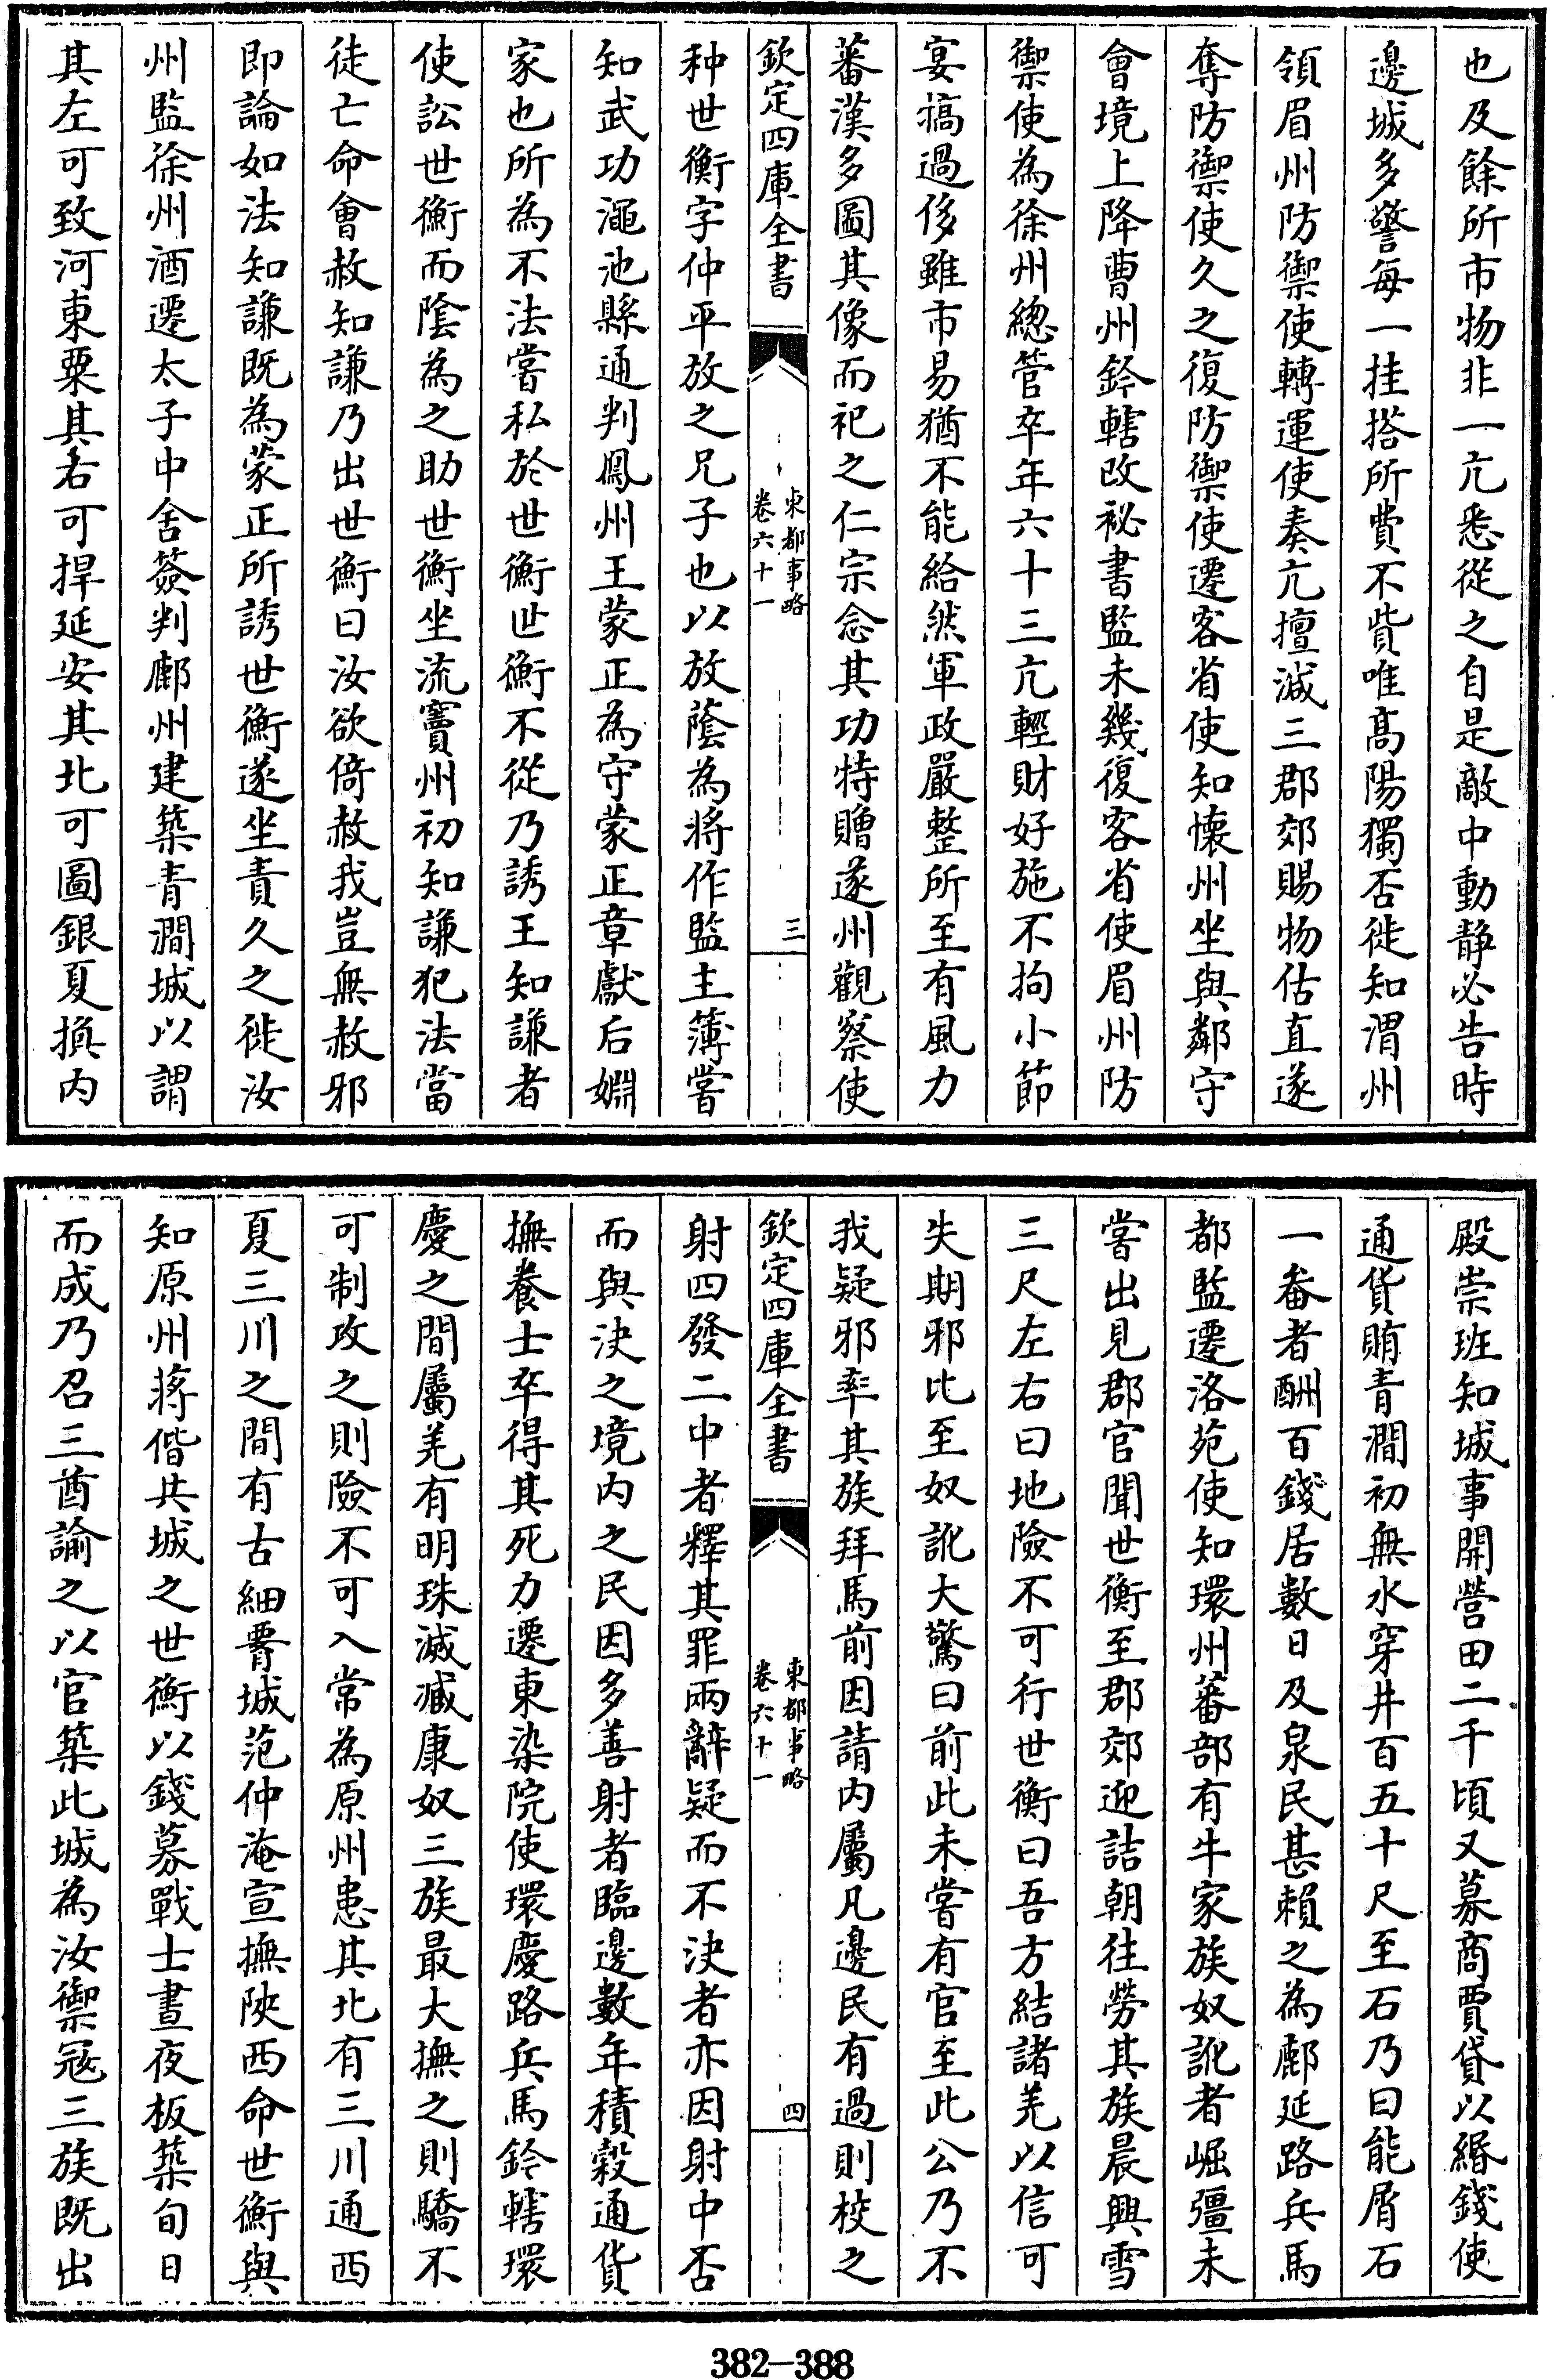 也及餘所市物非一亢悉從之自是敵中動静必告時
邊城多警每一挂搭所費不貲唯髙陽獨否徙知渭州
領眉州防禦使轉運使奏亢擅減三郡郊賜物估直遂
奪防禦使久之復防禦使遷客省使知懐州坐與鄰守
會境上降曹州鈐轄改祕書監未幾復客省使眉州防
禦使為徐州總管卒年六十三亢輕財好施不拘小節
宴犒過侈雖市易猶不能給然軍政嚴整所至有風力
蕃漢多圖其像而祀之仁宗念其功特贈遂州觀察使
欽定四庫全書
東都事略
卷六十一
三
种世衡字仲平放之兄子也以放蔭為將作監主簿嘗
知武功澠池縣通判鳳州王蒙正為守蒙正章獻后婣
家也所為不法嘗私於世衡世衡不從乃誘王知謙者
使訟世衡而陰為之助世衡坐流竇州初知謙犯法當
徒亡命會赦知謙乃出世衡曰汝欲倚赦我豈無赦邪
即論如法知謙既為蒙正所誘世衡遂坐責久之徙汝
州監徐州酒遷太子中舍簽判鄜州建築青澗城以謂
其左可致河東粟其右可捍延安其北可圖銀夏換内
殿崇班知城事開營田二千頃又募商賈貸以緡錢使
通貨賄青澗初無水穿井百五十尺至石乃曰能屑石
一畚者酬百錢居數日及泉民甚賴之為鄜延路兵馬
都監遷洛苑使知環州蕃部有牛家族奴訛者崛彊未
嘗出見郡官聞世衡至郡郊迎詰朝往勞其族晨興雪
三尺左右曰地險不可行世衡曰吾方結諸羌以信可
失期邪比至奴訛大驚曰前此未嘗有官至此公乃不
我疑邪率其族拜馬前因請内屬凡邊民有過則校之
欽定四庫全書
東都事略
卷六十一
四
射四發二中者釋其罪兩辭疑而不決者亦因射中否
而與決之境内之民因多善射者臨邊數年積穀通貨
撫養士卒得其死力遷東染院使環慶路兵馬鈐轄環
慶之間屬羌有明珠滅臧康奴三族最大撫之則驕不
可制攻之則險不可入常為原州患其北有三川通西
夏三川之間有古細腰城范仲淹宣撫陜西命世衡與
知原州蔣偕共城之世衡以錢募戰士晝夜板築旬日
而成乃召三酋諭之以官築此城為汝禦冦三族既出
382—388